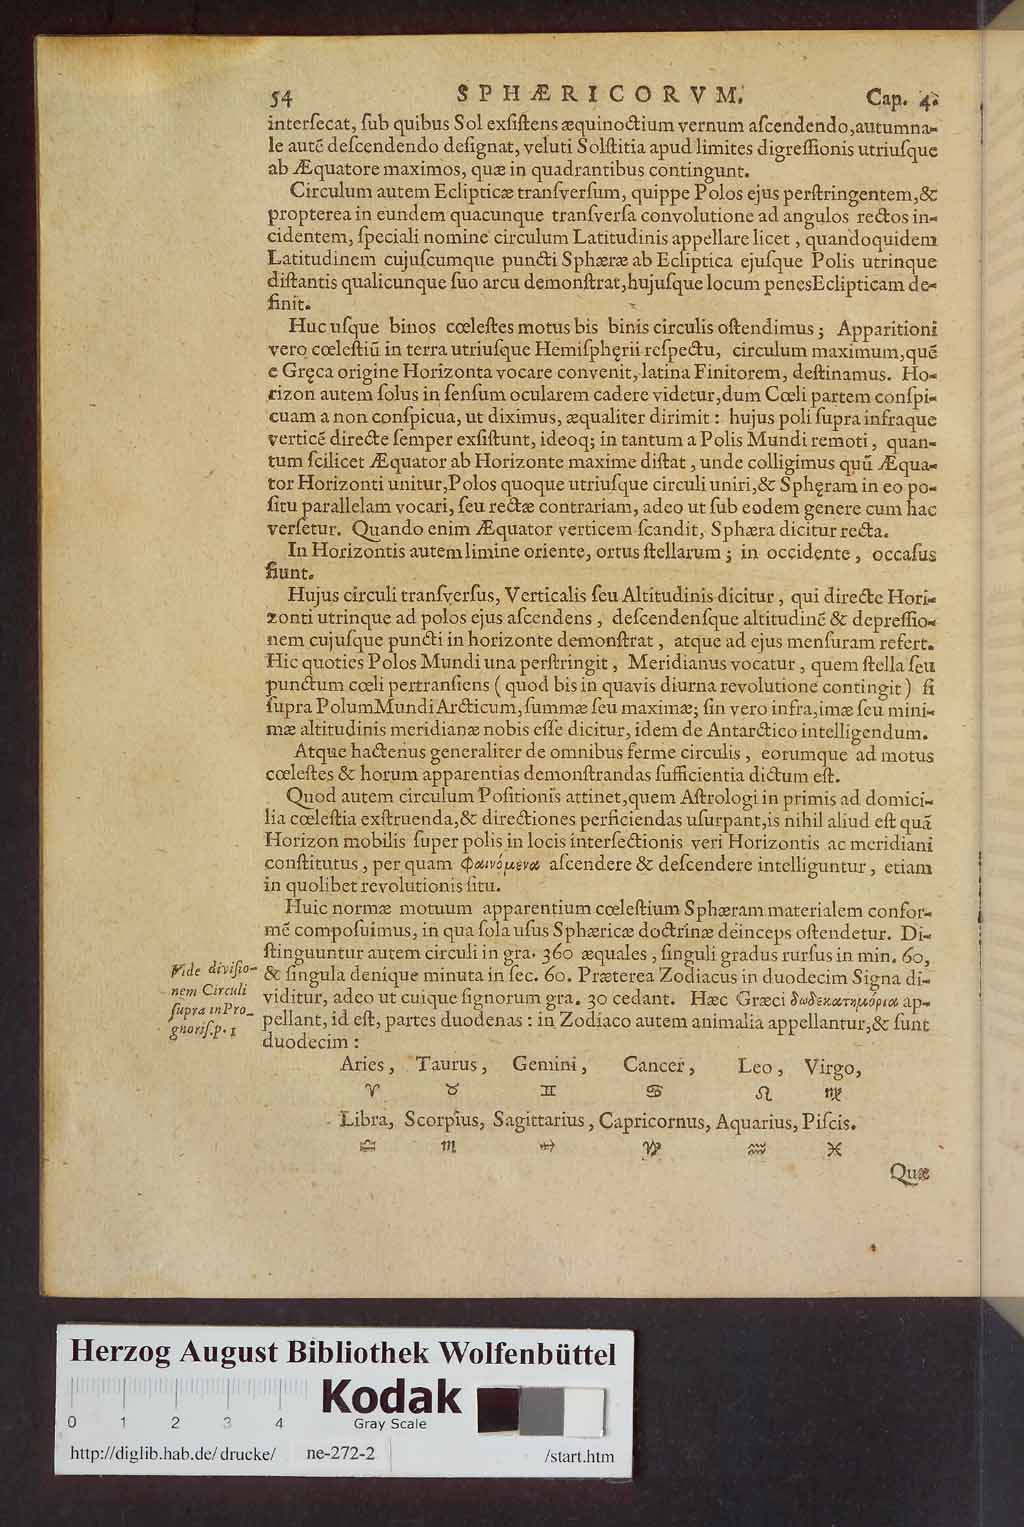 54 SPHÆRICORVM. Cap. 4.
interſecat, ſub quibus Sol exſiſtens æquinoctium vernum aſcendendo, autumna-
le autē deſcendendo deſignat, veluti Solſtitia apud limites digreſſionis utriuſque
ab Æquatore maximos, quæ in quadrantibus contingunt.
Circulum autem Eclipticæ tranſverſum, quippe Polos ejus perſtringentem, &
propterea in eundem quacunque tranſverſa convolutione ad angulos rectos in-
cidentem, ſpeciali nomine circulum Latitudinis appellare licet, quandoquidem
Latitudinem cujuſcumque puncti Sphæræ ab Ecliptica ejuſque Polis utrinque
diſtantis qualicunque ſuo arcu demonſtrat, hujuſque locum penes Eclipticam de-
finit.
Huc uſque binos cœleſtes motus bis binis circulis oſtendimus; Apparitioni
vero cœleſtiū in terra utriuſque Hemiſphęrii reſpectu, circulum maximum, quē
e Gręca origine Horizonta vocare convenit, latina Finitorem, deſtinamus. Ho-
rizon autem ſolus in ſenſum ocularem cadere videtur, dum Cœli partem conſpi-
cuam a non conſpicua, ut diximus, æqualiter dirimit: hujus poli ſupra infraque
verticē directe ſemper exſiſtunt, ideoq; in tantum a Polis Mundi remoti, quan-
tum ſcilicet Æquator ab Horizonte maxime diſtat, unde colligimus quū Æqua-
tor Horizonti unitur, Polos quoque utriuſque circuli uniri, & Sphęram in eo po-
ſitu parallelam vocari, ſeu rectæ contrariam, adeo ut ſub eodem genere cum hac
verſetur. Quando enim Æquator verticem ſcandit, Sphæra dicitur recta.
In Horizontis autem limine oriente, ortus ſtellarum; in occidente, occaſus
fiunt.
Hujus circuli tranſverſus, Verticalis ſeu Altitudinis dicitur, qui directe Hori-
zonti utrinque ad polos ejus aſcendens, deſcendenſque altitudinē & depreſſio-
nem cujuſque puncti in horizonte demonſtrat, atque ad ejus menſuram refert.
Hic quoties Polos Mundi una perſtringit, Meridianus vocatur, quem ſtella ſeu
punctum cœli pertranſiens (quod bis in quavis diurna revolutione contingit) ſi
ſupra Polum Mundi Arcticum, ſummæ ſeu maximæ; ſin vero infra, imæ ſeu mini-
mæ altitudinis meridianæ nobis eſſe dicitur, idem de Antarctico intelligendum.
Atque hactenus generaliter de omnibus ferme circulis, eorumque ad motus
cœleſtes & horum apparentias demonſtrandas ſufficientia dictum eſt.
Quod autem circulum Poſitionis attinet, quem Aſtrologi in primis ad domici-
lia cœleſtia exſtruenda, & directiones perficiendas uſurpant, is nihil aliud eſt quā
Horizon mobilis ſuper polis in locis interſectionis veri Horizontis ac meridiani
conſtitutus, per quam φαινόμενα aſcendere & deſcendere intelliguntur, etiam
in quolibet revolutionis ſitu.
Huic normæ motuum apparentium cœleſtium Sphæram materialem confor-
mē compoſuimus, in qua ſola uſus Sphæricæ doctrinæ deinceps oſtendetur. Di-
ſtinguuntur autem circuli in gra. 360 æquales, ſinguli gradus rurſus in min. 60,
& ſingula denique minuta in ſec. 60. Præterea Zodiacus in duodecim Signa di-
viditur, adeo ut cuique ſignorum gra. 30 cedant. Hæc Græci δωδεκατημόρια ap-
pellant, id eſt, partes duodenas: in Zodiaco autem animalia appellantur, & ſunt
duodecim:
Vide diviſio-
nem Circuli
ſupra in Pro-
gnoriſ. p. 1
Aries, Taurus, Gemini, Cancer, Leo, Virgo,
♈ ♉ ♊ ♋ ♌ ♍
Libra, Scorpius, Sagittarius, Capricornus, Aquarius, Piſcis.
♎ ♏ ♐ ♑ ♒ ♓
Quæ
Herzog August Bibliothek Wolfenbüttel
0 1 2 3 4
Kodak
Gray Scale
http://diglib.hab.de/drucke/ ne-272-2 /start.htm